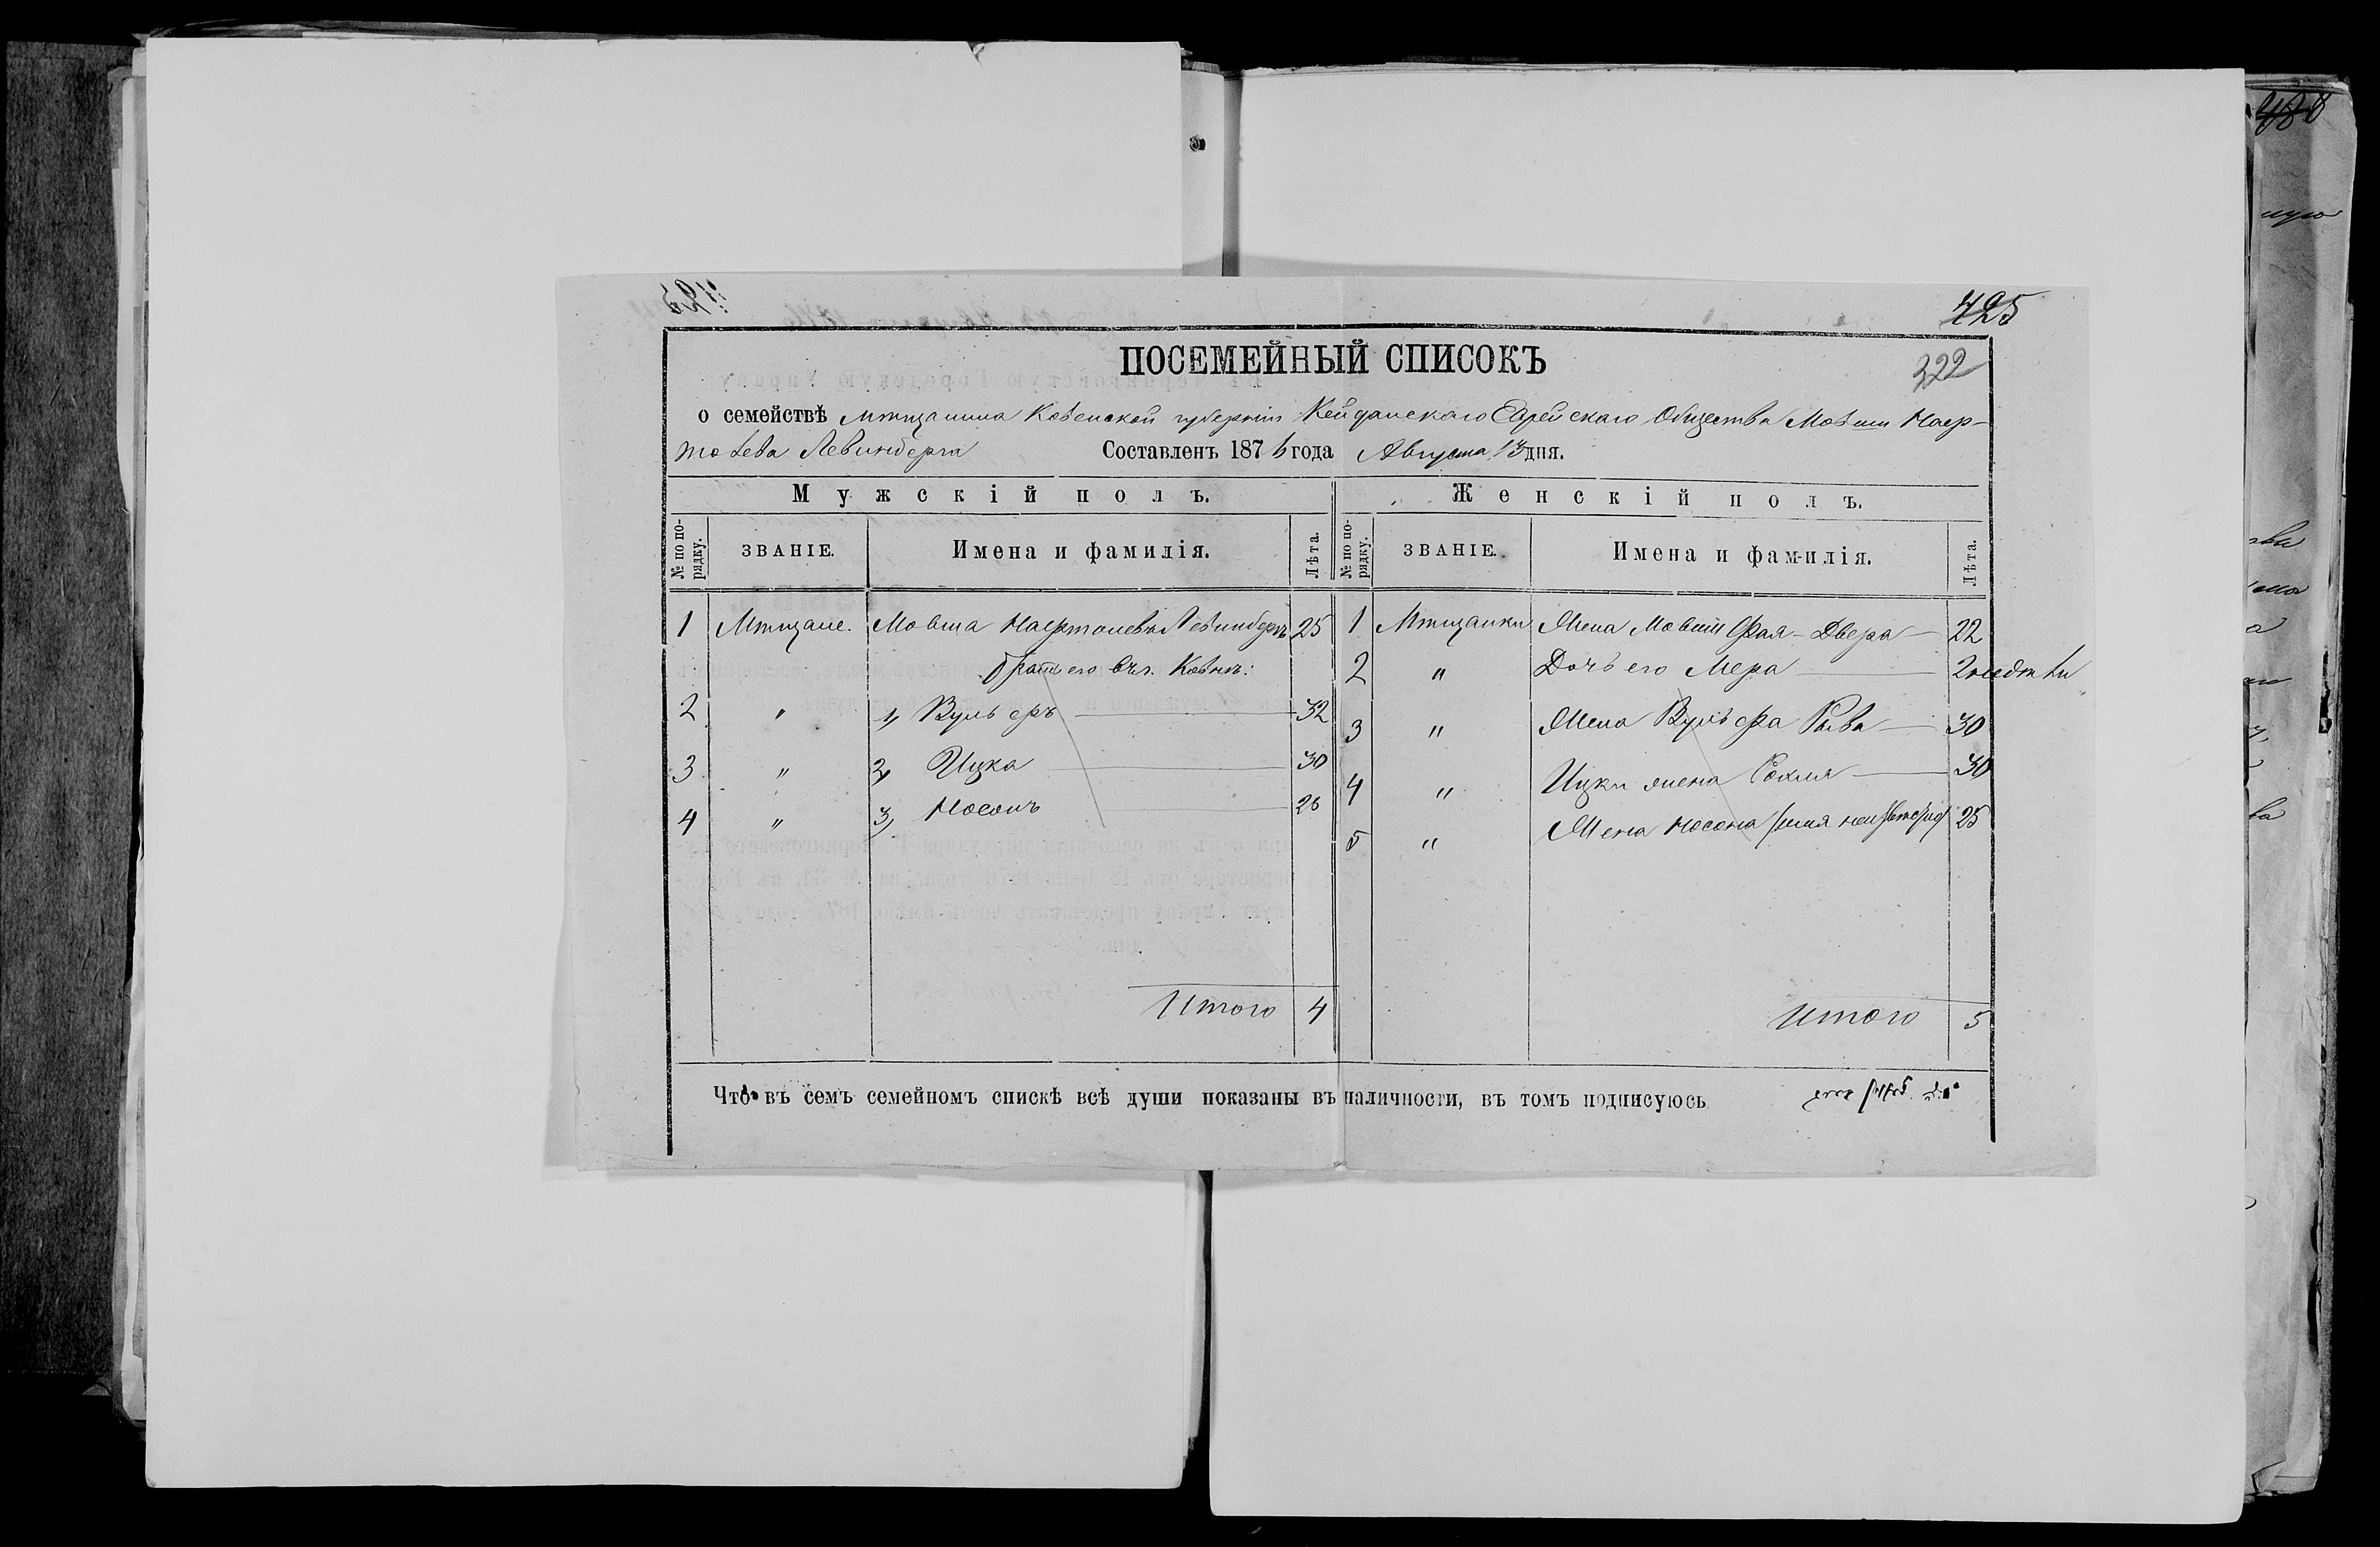 425
ПОСЕМЕЙНЫЙ СПИСОКЪ
322
о семействѣ мѣщанина Ковенской губерніи Кейданскаго Еврейскаго Общества Мовши Наер-
толева Левинберга Составленъ 1876 года Августа 13 дня.
Мужскій полъ. Женскій полъ.
№ по по-рядку. ЗВАНІЕ. Имена и фамилія. Лѣта. № по по-рядку. ЗВАНІЕ. Имена и фамилія. Лѣта.
1 Мѣщане. Мовша Наертолевъ Левинбергъ 25 1 Мѣщанки Жена Мовши Фая-Двера 22
братъ его Ковнѣ: 2 " Дочь его Мера 2 недѣли
2 " 1, Вульфъ 32 3 " Жена Вульфа Рива 30
3 " 2, Ицка 30 4 " Ицки жена Рохля 30
4 " 3, Носонъ 26 5 " Жена Носона /имя неизвѣстно/ 25
Итого 4 Итого 5
Что въ семъ семейномъ спискѣ всѣ души показаны въ наличности, въ томъ подписуюсь
488